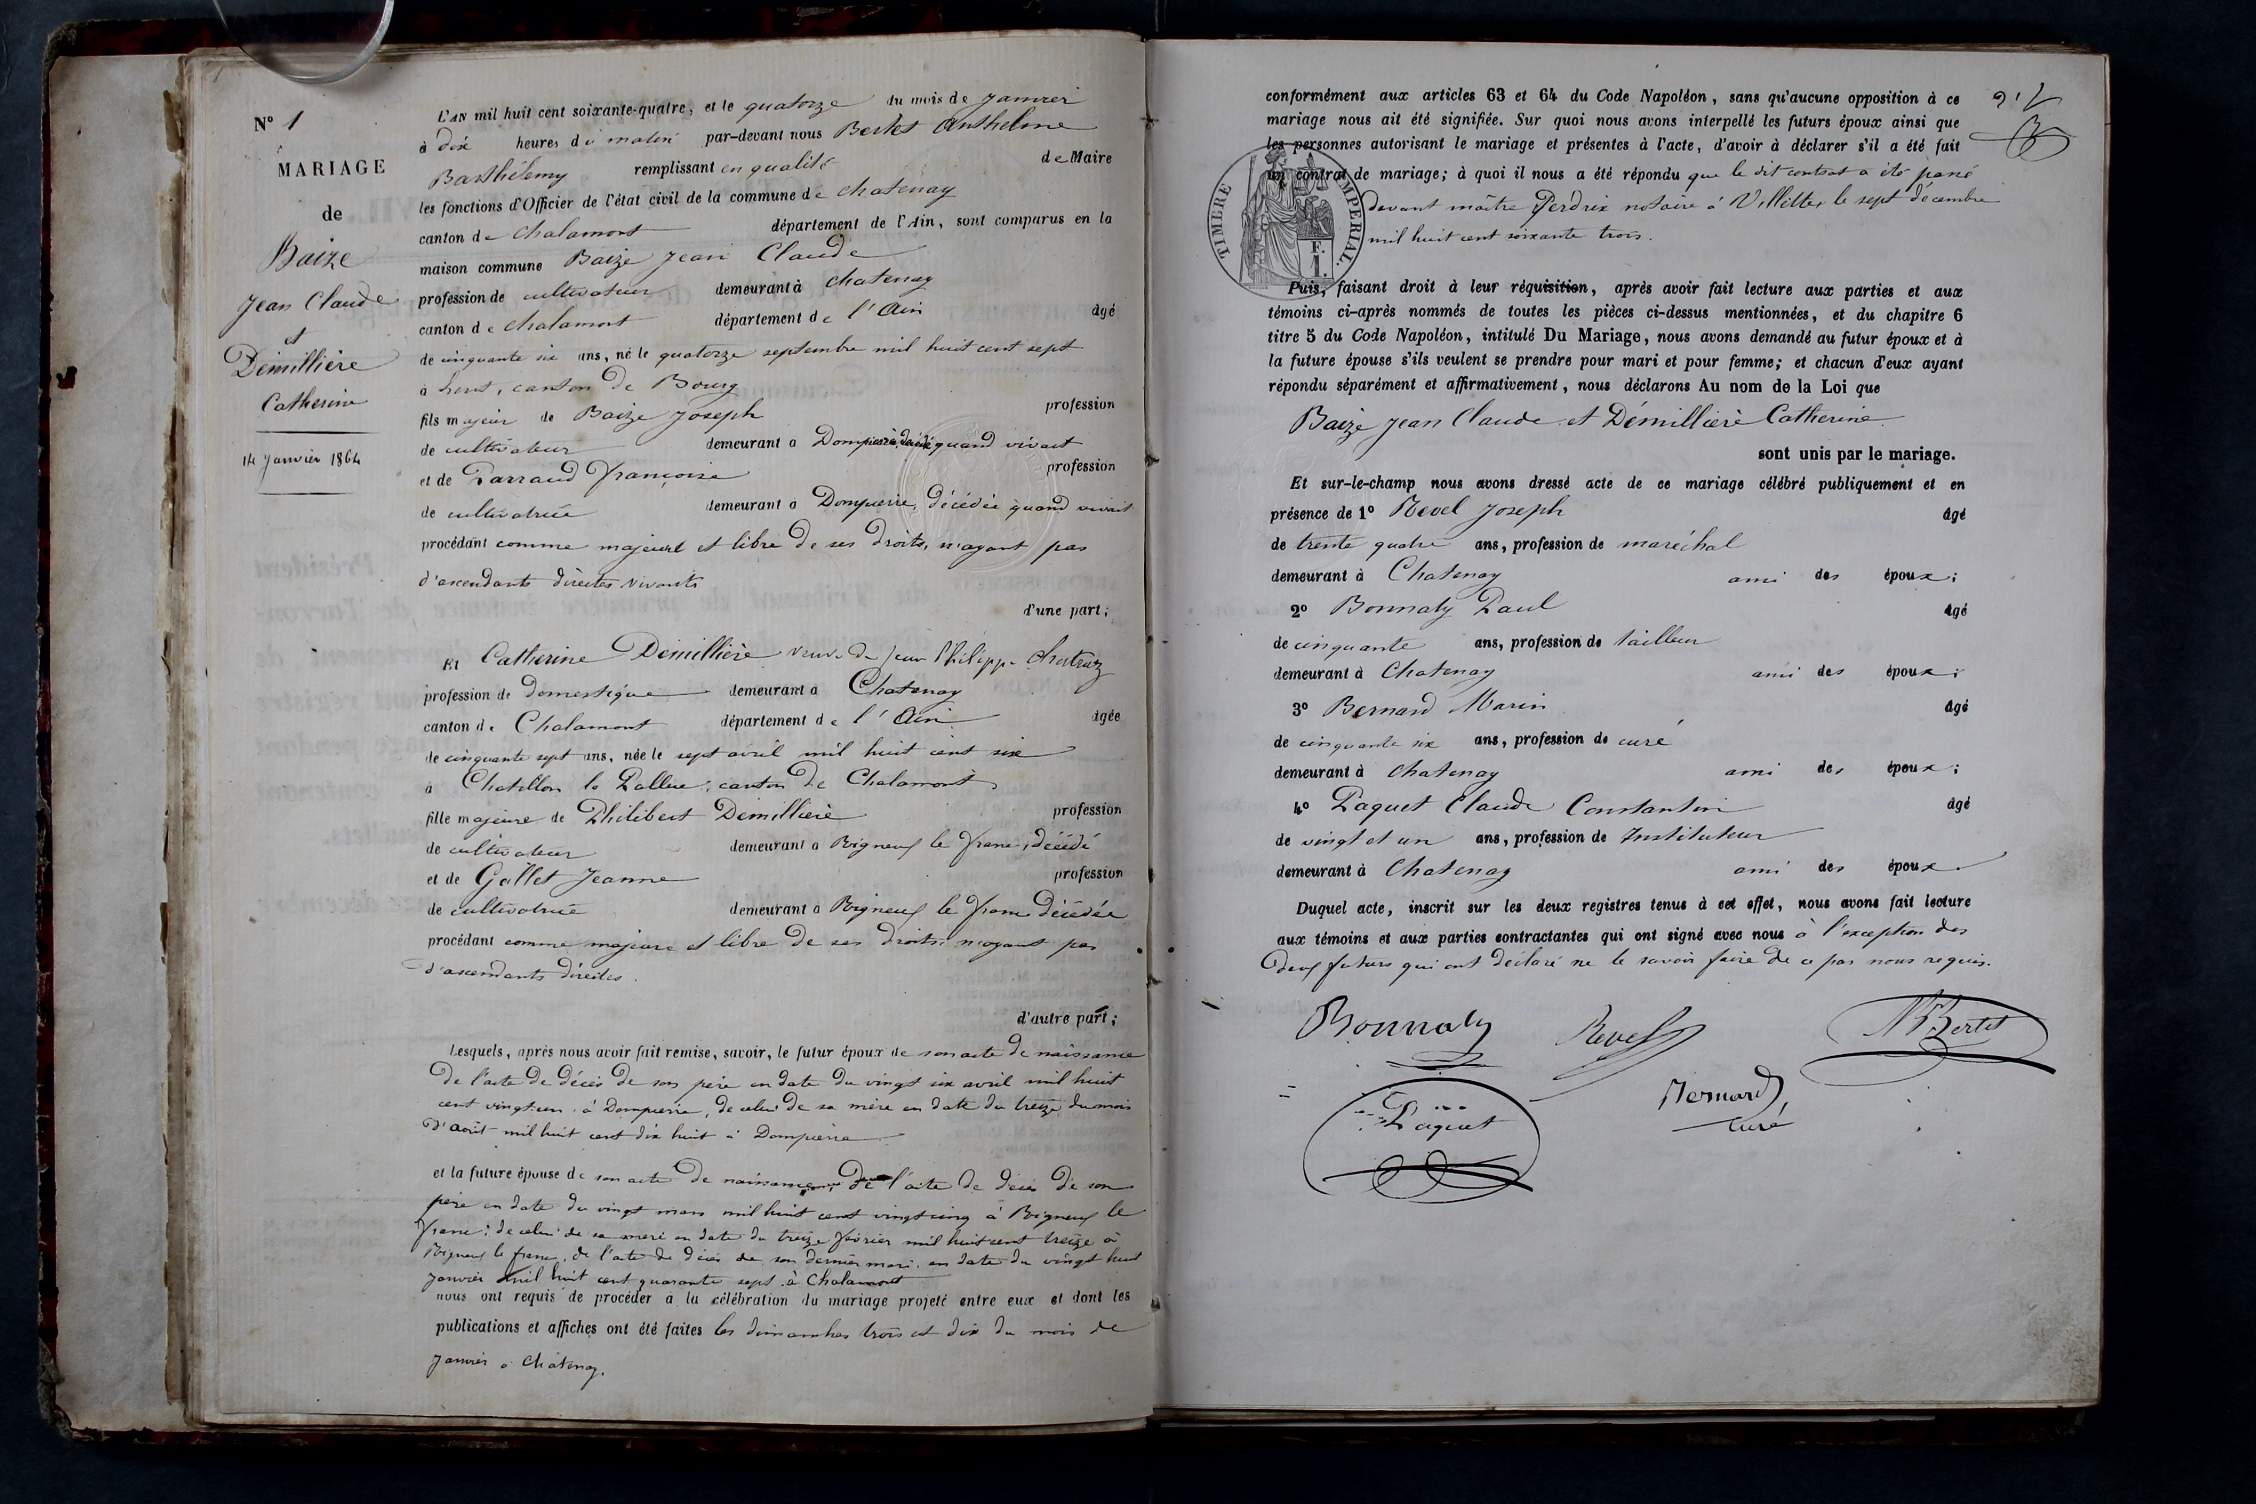 N° 1
MARIAGE
de
Baize
Jean Claude
et
Démillière
Catherine
14 Janvier 1864
L'AN mil huit cent soixante-quatre, et le quatorze du mois de Janvier
à dix heures du matin par-devant nous Bertet Anthelme
Barthélemy remplissant en qualité de Maire
les fonctions d'Officier de l'état civil de la commune de Chatenay
canton de Chalamont département de l'Ain, sont comparus en la
maison commune Baize Jean Claude
profession de cultivateur demeurant à Chatenay
canton de Chalamont département de l'Ain âgé
de cinquante six ans, né le quatorze septembre mil huit cent sept
à canton de Bourg
fils majeur de Baize Joseph profession
de cultivateur demeurant à Dompierre, décédé quand vivait
et de Parraud Françoise profession
de cultivatrice demeurant à Dompierre, décédée quand vivait
procédant comme majeur et libre de ses droits, n'ayant pas
d'ascendants directes vivants
d'une part;
Et Catherine Démillière veuve de Jean Philippe
profession de domestique demeurant à Chatenay
canton de Chalamont département de l'Ain âgée
de cinquante sept ans, née le sept avril mil huit cent six
à Chatillon la Pallue, canton de Chalamont
fille majeure de Philibert Démillière profession
de cultivateur demeurant à Rigneux le Franc, décédé
et de Gallet Jeanne profession
de cultivatrice demeurant à Rigneux le Franc décédée
procédant comme majeure et libre de ses droits, n'ayant pas
d'ascendants directes.
d'autre part;
Lesquels, après nous avoir fait remise, savoir, le futur époux de son acte de naissance
de l'acte de décès de son père en date du vingt six avril mil huit
cent vingt-un à Dompierre, de celui de sa mère en date du treize du mois
d'août mil huit cent dix huit à Dompierre
et la future épouse de son acte de naissance, de l'acte de décès de son
père en date du vingt mars mil huit cent vingt cinq à Rigneux le
Franc; de celui de sa mère en date du treize février mil huit cent treize à
Rigneux le franc, de l'acte de décès de son dernier mari en date du vingt huit
janvier mil huit cent quarante sept à Chalamont
nous ont requis de procéder à la célébration du mariage projeté entre eux et dont les
publications et affiches ont été faites les dimanches trois et dix du mois de
Janvier à Châtenay.
conformément aux articles 63 et 64 du Code Napoléon, sans qu'aucune opposition à ce
mariage nous ait été signifiée. Sur quoi nous avons interpellé les futurs époux ainsi que
les personnes autorisant le mariage et présentes à l'acte, d'avoir à déclarer s'il a été fait
un contrat de mariage; à quoi il nous a été répondu que le dit contrat a été passé
devant maître Perdrix notaire à Villette, le sept décembre
mil huit cent soixante trois.
TIMBRE IMPÉRIAL
F.
1.
Puis, faisant droit à leur réquisition, après avoir fait lecture aux parties et aux
témoins ci-après nommés de toutes les pièces ci-dessus mentionnées, et du chapitre 6
titre 5 du Code Napoléon, intitulé Du Mariage, nous avons demandé au futur époux et à
la future épouse s'ils veulent se prendre pour mari et pour femme; et chacun d'eux ayant
répondu séparément et affirmativement, nous déclarons Au nom de la Loi que
Baize Jean Claude et Démillière Catherine
sont unis par le mariage.
Et sur-le-champ nous avons dressé acte de ce mariage célébré publiquement et en
présence de 1° Revel Joseph âgé
de trente quatre ans, profession de maréchal
demeurant à Chatenay ami des époux;
2° Bonnaly Paul âgé
de cinquante ans, profession de tailleur
demeurant à Chatenay ami des époux;
3° Bernard Marin âgé
de cinquante six ans, profession de curé
demeurant à Chatenay ami des époux;
4° Paquet Claude Constantin âgé
de vingt et un ans, profession de Instituteur
demeurant à Chatenay ami des époux
Duquel acte, inscrit sur les deux registres tenus à cet effet, nous avons fait lecture
aux témoins et aux parties contractantes qui ont signé avec nous à l'exception des
deux futurs qui ont déclaré ne le savoir faire de ce par nous requis.
Bonnaly Revel Bertet
Paquet Bernard,
curé